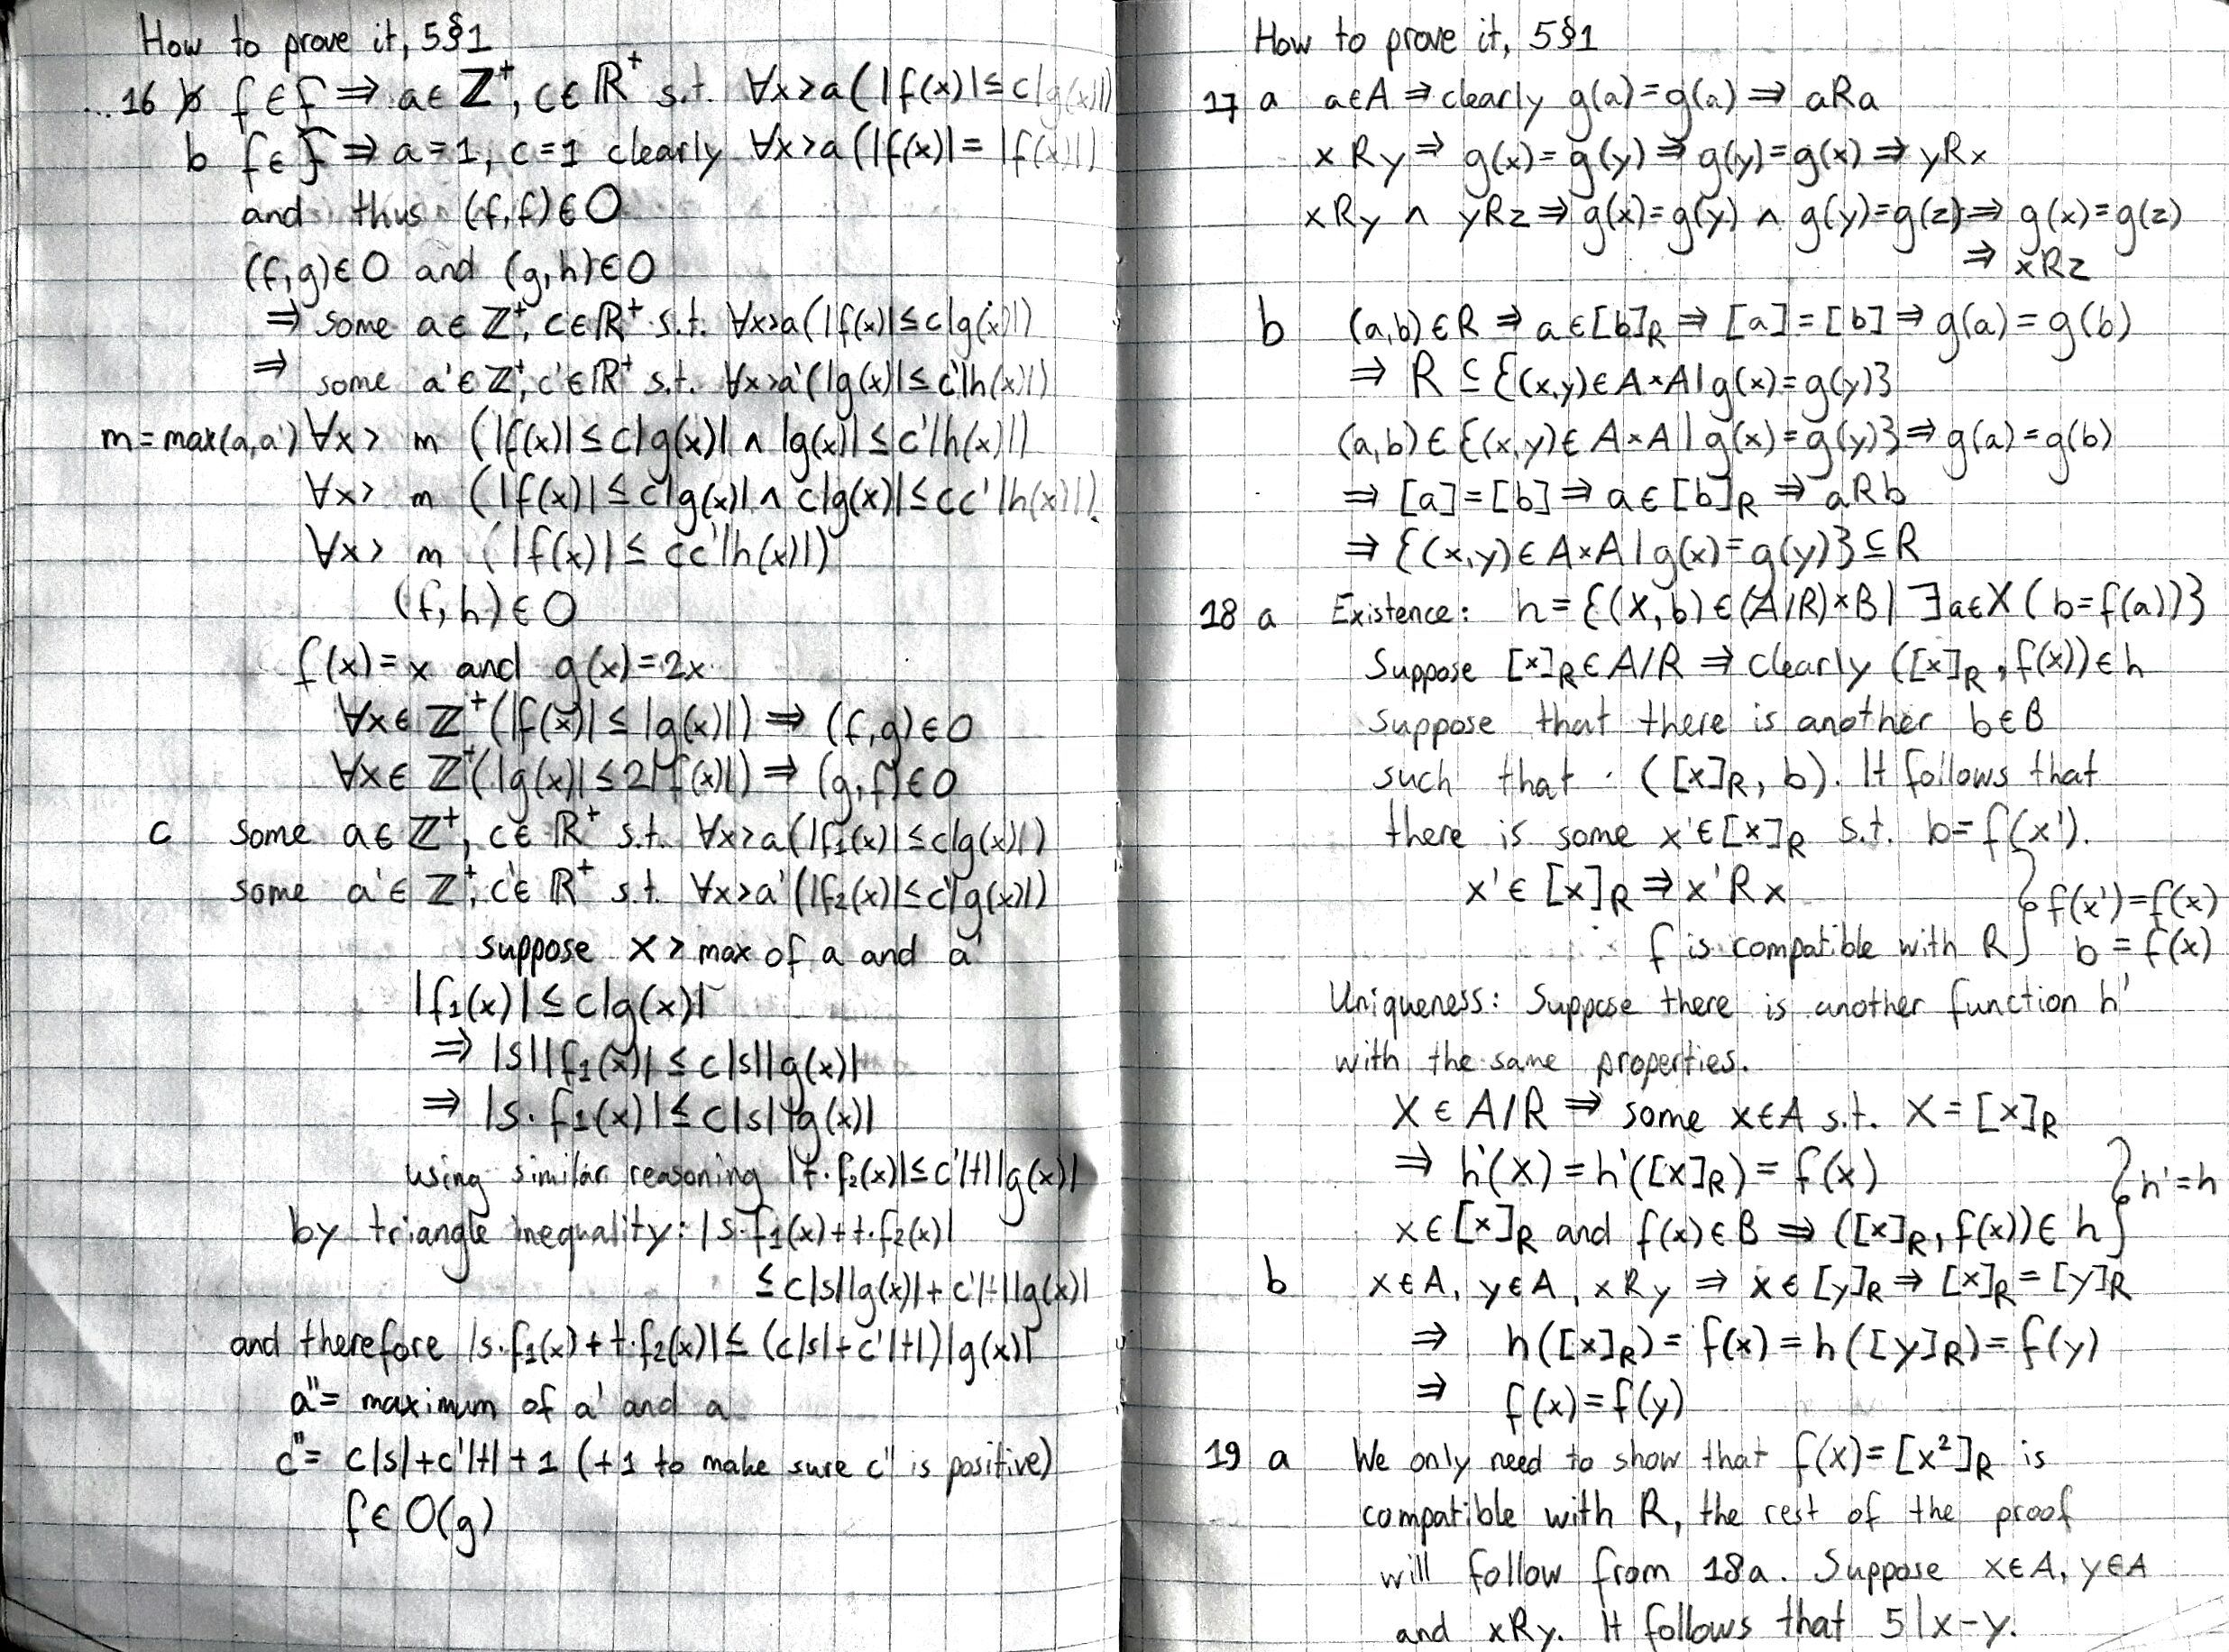 How to prove it, 5§1
16 b f ∈ F ⇒ a ∈ ℤ⁺, c ∈ ℝ⁺ s.t. ∀x>a(|f(x)| ≤ c|g(x)|)
b f ∈ F ⇒ a=1, c=1 clearly ∀x>a(|f(x)| = |f(x)|)
and thus (f,f) ∈ O
(f,g) ∈ O and (g,h) ∈ O
⇒ some a ∈ ℤ⁺, c ∈ ℝ⁺ s.t. ∀x>a(|f(x)| ≤ c|g(x)|)
⇒ some a' ∈ ℤ⁺, c' ∈ ℝ⁺ s.t. ∀x>a'(|g(x)| ≤ c'|h(x)|)
m = max(a,a') ∀x> m (|f(x)| ≤ c|g(x)| ∧ |g(x)| ≤ c'|h(x)|)
∀x> m (|f(x)| ≤ c|g(x)| ∧ c|g(x)| ≤ cc'|h(x)|)
∀x> m (|f(x)| ≤ cc'|h(x)|)
(f,h) ∈ O
f(x) = x and g(x) = 2x
∀x ∈ ℤ⁺(|f(x)| ≤ |g(x)|) ⇒ (f,g) ∈ O
∀x ∈ ℤ⁺(|g(x)| ≤ 2|f(x)|) ⇒ (g,f) ∈ O
c some a ∈ ℤ⁺, c ∈ ℝ⁺ s.t. ∀x>a(|f₁(x)| ≤ c|g(x)|)
some a' ∈ ℤ⁺, c' ∈ ℝ⁺ s.t. ∀x>a'(|f₂(x)| ≤ c'|g(x)|)
suppose x > max of a and a'
|f₁(x)| ≤ c|g(x)|
⇒ |s||f₁(x)| ≤ c|s||g(x)|
⇒ |s·f₁(x)| ≤ c|s||g(x)|
using similar reasoning |t·f₂(x)| ≤ c'|t||g(x)|
by triangle inequality: |s·f₁(x)+t·f₂(x)|
≤ c|s||g(x)| + c'|t||g(x)|
and therefore |s·f₁(x) + t·f₂(x)| ≤ (c|s|+c'|t|)|g(x)|
a'' = maximum of a' and a
c'' = c|s|+c'|t|+1 (+1 to make sure c'' is positive)
f ∈ O(g)
How to prove it, 5§1
17 a a∈A ⇒ clearly g(a)=g(a) ⇒ aRa
xRy ⇒ g(x)=g(y) ⇒ g(y)=g(x) ⇒ yRx
xRy ∧ yRz ⇒ g(x)=g(y) ∧ g(y)=g(z) ⇒ g(x)=g(z)
⇒ xRz
b (a,b)∈R ⇒ a∈[b]_R ⇒ [a]=[b] ⇒ g(a)=g(b)
⇒ R ⊆ {(x,y)∈A×A | g(x)=g(y)}
(a,b)∈{(x,y)∈A×A | g(x)=g(y)} ⇒ g(a)=g(b)
⇒ [a]=[b] ⇒ a∈[b]_R ⇒ aRb
⇒ {(x,y)∈A×A | g(x)=g(y)} ⊆ R
18 a Existence: h={(X,b)∈(A/R)×B | ∃a∈X(b=f(a))}
Suppose [x]_R∈A/R ⇒ clearly ([x]_R, f(x))∈h
suppose that there is another b∈B
such that ([x]_R, b). It follows that
there is some x'∈[x]_R s.t. b=f(x').
x'∈[x]_R ⇒ x'Rx
} f(x')=f(x)
f is compatible with R b = f(x)
Uniqueness: Suppose there is another function h'
with the same properties.
X∈A/R ⇒ some x∈A s.t. X=[x]_R
⇒ h'(X) = h'([x]_R) = f(x)
} h'=h
x∈[x]_R and f(x)∈B ⇒ ([x]_R, f(x))∈h
b x∈A, y∈A, xRy ⇒ x∈[y]_R ⇒ [x]_R=[y]_R
⇒ h([x]_R) = f(x) = h([y]_R) = f(y)
⇒ f(x)=f(y)
19 a We only need to show that f(x)=[x²]_R is
compatible with R, the rest of the proof
will follow from 18a. Suppose x∈A, y∈A
and xRy. It follows that 5|x-y.